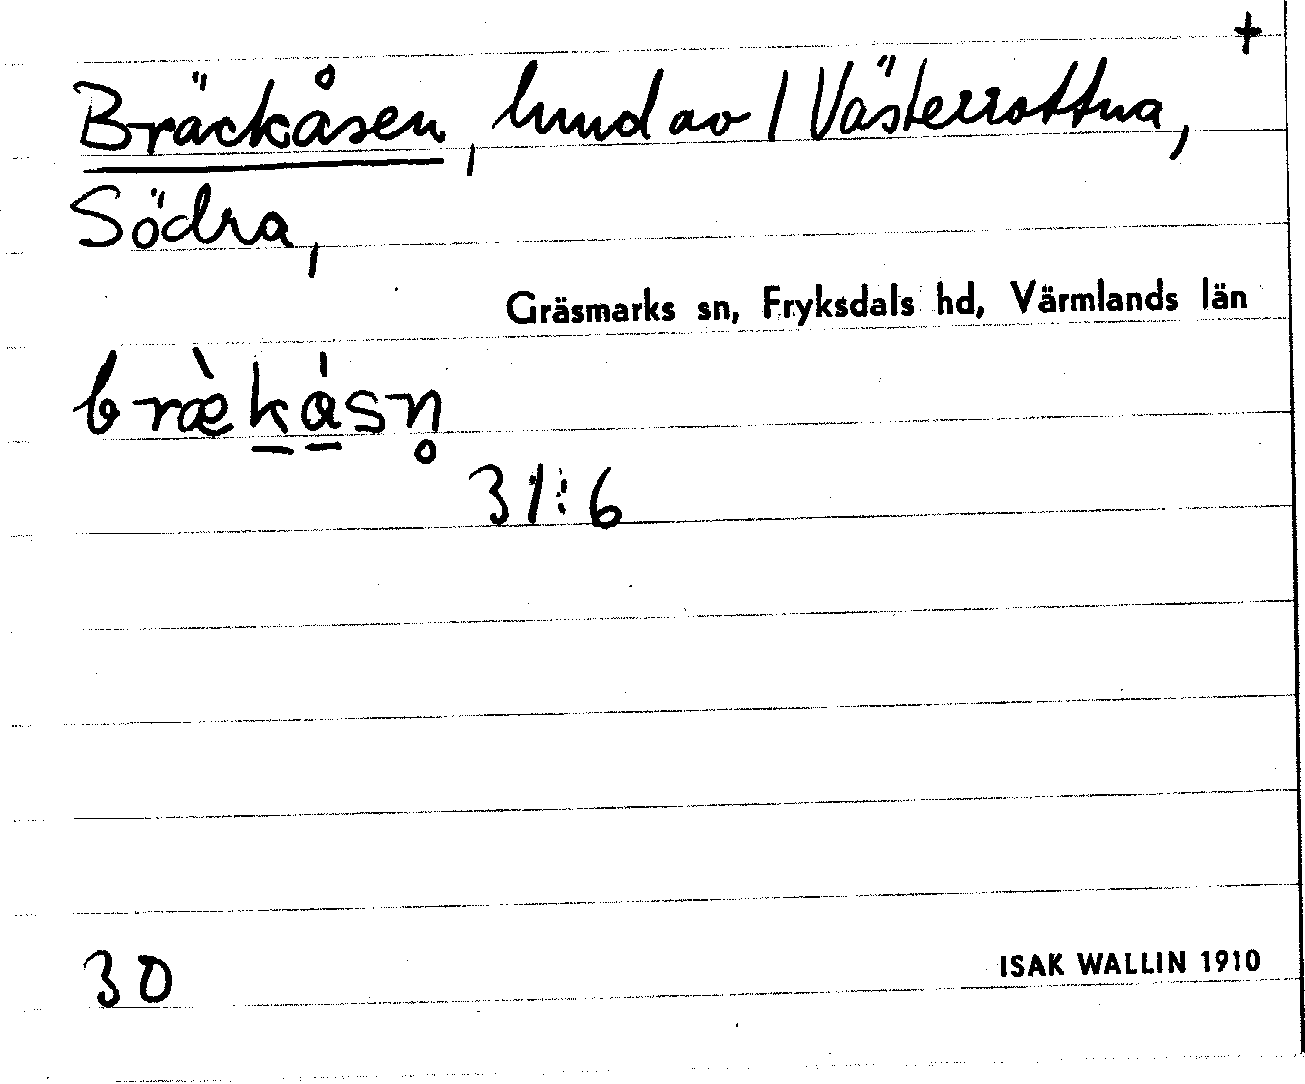 +
Bräckåsen, hmd av 1 Västerrottna,
Södra,
Gräsmarks sn, Fryksdals hd, Värmlands län
bræ̀kåsn̥
31:6
30
ISAK WALLIN 1910